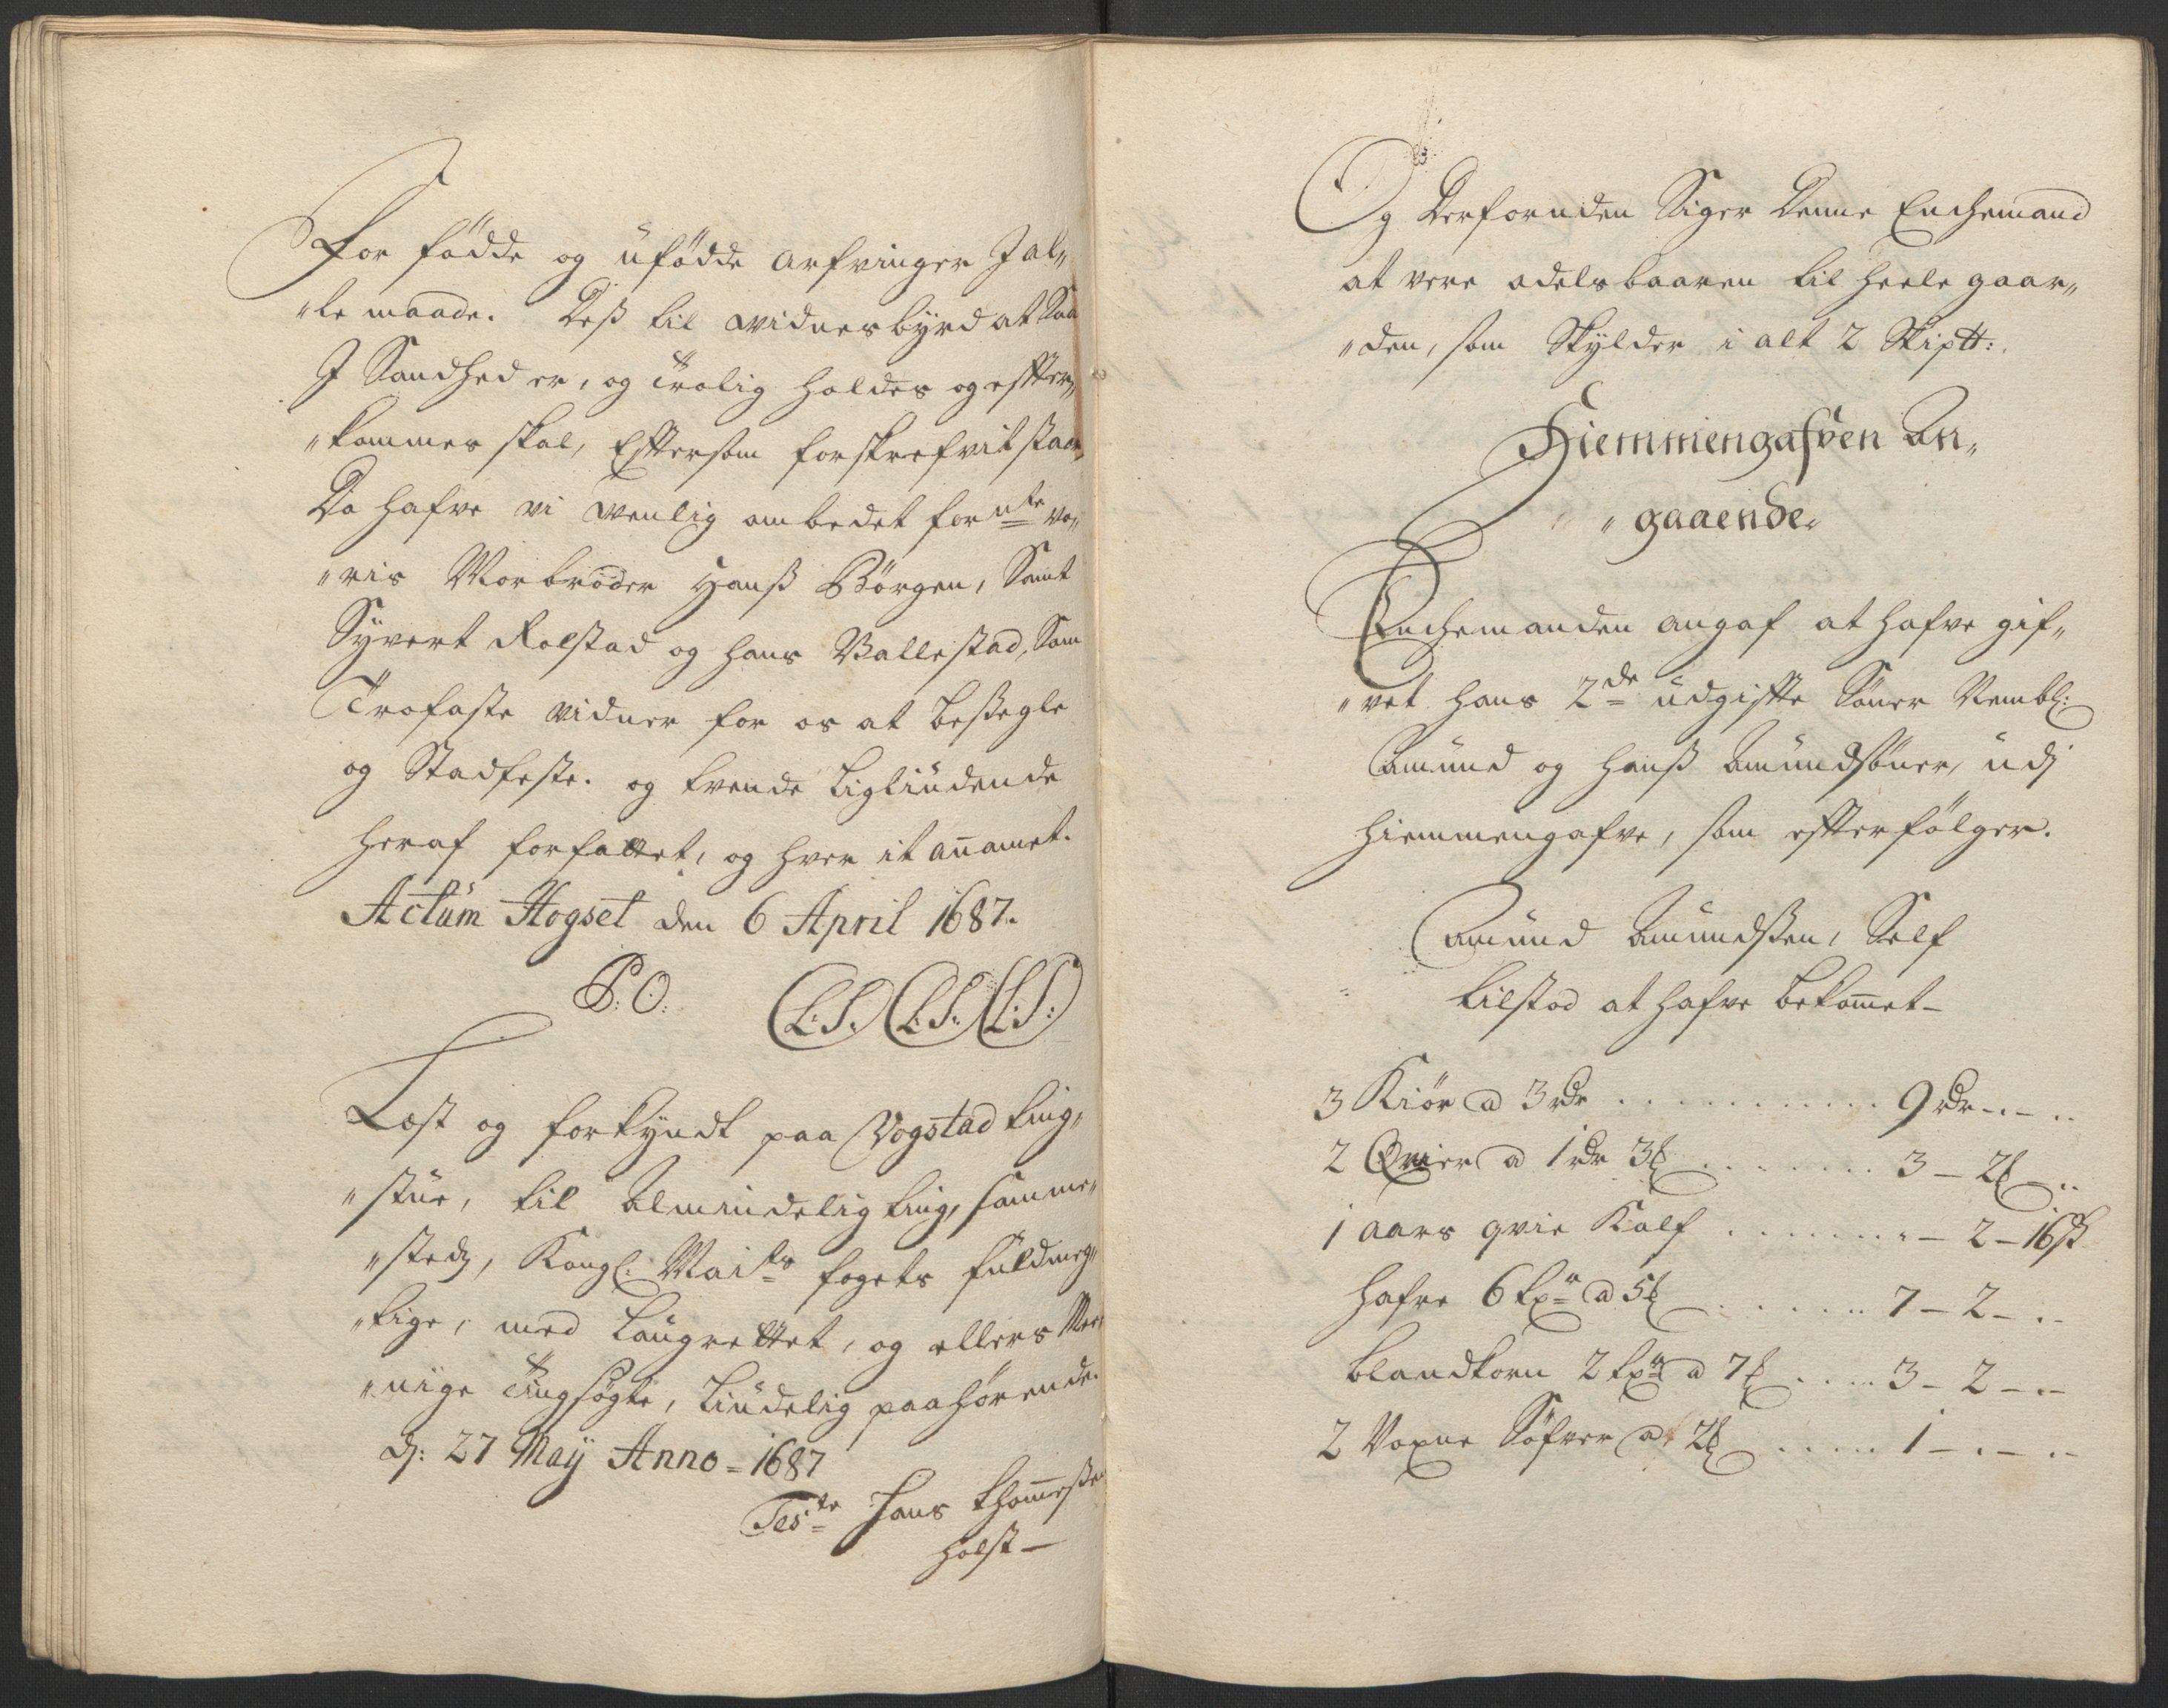 For födde og ufödde arfvinger J al„
„le maade. Deß til widnesbyrd at Saa
J Sandhed er, og trolig holdes og effter„
„kommes skal, Efftersom forskrefvit staar,
Da hafve vi wenlig ombedet for nte vo„
„ris Morbroder Hanß Börgen, Samt
Syvert Rolstad og Hans Ballestad, Som
Trofaste vidner for os at beßegle
og Stadfeste. og tvende Liglÿdende
heraf forfattet, og hver it annamet.
Actum Hogset den 6 April 1687.
P: O: L: S: L: S: L: S:
Læst og forkyndt paa Vogstad ting„
„stue, til Almindelig ting, samme„
„stedz, Kongl: Maits fogets fuldmeg„
„tige, med Laugrettet, og ellers Me„
„nige Tingsögte, Liudelig paahörende.
dj: 27 Maÿ Anno = 1687
Teste Hans Thommeßen
Holst —
Og Derforuden Siger Denne Enchemand
at vere odelsbaaren til heele gaar„
„den, som Skylder i alt 2 Skiptt:
Hiemmengafven An„
„gaaende
Enchemanden angaf at hafve gif„
„vet hans 2de udgiffte Sönner Nembl:
Amund og Hanß Amundsöner, udj
hiemmengafve, som effterfölger.
Amund Amundßen, Self
tilstod at hafve bekommet —
3 Kiör a 3 rdr . . . . . . . . . . . 9 rdr - . - . .
2 Qvier a 1 rdr 3 ₰ . . . . . . . . 3 — 2 ₰ — . .
1 aars qvie Kalf . . . . . . . - — 2 — 16 ß
Hafre 6 tpr a 5 ₰ . . . . . . 7 — 2 — . .
blandkorn 2 tpr a 7 ₰ . . . . 3 — 2 — . —
2 Voxne Söfver a 2 ₰ . . . . . 1 — . — . .